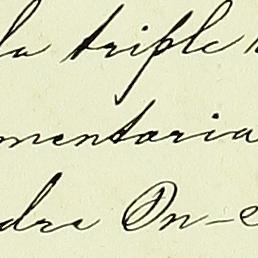 la triple
mentaria
dre On-